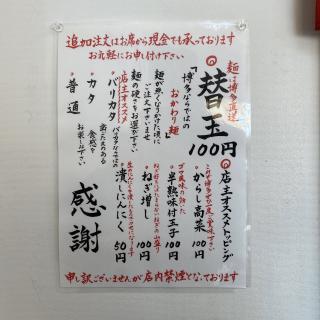 追加注文はお席から現金でも承っております
お気軽にお申し付け下さい
麺は博多直送
替玉
100円
「博多ならではの
おかわり麺」
麺が無くなりかけた頃に
ご注文下さいませ
麺の硬さをお選び下さい
店主オススメ
バリカタ
カタ
普通
店主オススメトッピング
からし高菜
100円
半熟味付玉子
100円
ねぎ増し
100円
潰しにんにく
50円
感謝
申し訳ございませんが店内禁煙となっております